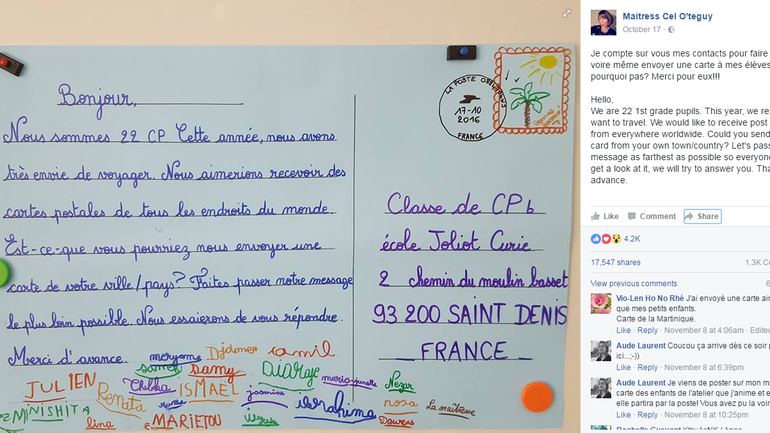 Bonjour,
Nous sommes 22 CP Cette année, nous avons
très envie de voyager. Nous aimerions recevoir des
cartes postales de tous les endroits du monde.
Est-ce-que vous pourriez nous envoyer une
carte de votre ville/pays? Faites passer notre message
le plus loin possible. Nous essaierons de vous répondre.
Merci d'avance.
meryame Djdomer camil
samy OUARAYE marie-junette Nezar
JULIEN Renata Chikka ISMAEL jasmine rosa
MINISHITA lina MARIETOU ibrahima Dawens La maîtresse
LA POSTE
17-10
2016
FRANCE
Classe de CP b
école Joliot Curie
2 chemin du moulin basset
93 200 SAINT DENIS
FRANCE
Maitress Cel O'teguy
October 17
Je compte sur vous mes contacts pour faire
voire même envoyer une carte à mes élèves
pourquoi pas? Merci pour eux!!!
Hello,
We are 22 1st grade pupils. This year, we re
want to travel. We would like to receive post
from everywhere worldwide. Could you send
card from your own town/country? Let's pass
message as farthest as possible so everyone
get a look at it, we will try to answer you. Tha
advance.
Like Comment Share
4.2K
17,547 shares 1.3K Co
View previous comments 6
Vio-Len Ho No Rhè J'ai envoyé une carte ain
que mes petits enfants.
Carte de la Martinique.
Like · Reply · November 8 at 4:06am · Edite
Aude Laurent Coucou ça arrive dès ce soir p
ici...;-))
Like · Reply · November 8 at 6:39pm
Aude Laurent Je viens de poster sur mon m
carte des enfants de l'atelier que j'anime et e
elle partira par la poste! Vous avez pu la voir
Like · Reply · November 8 at 10:25pm